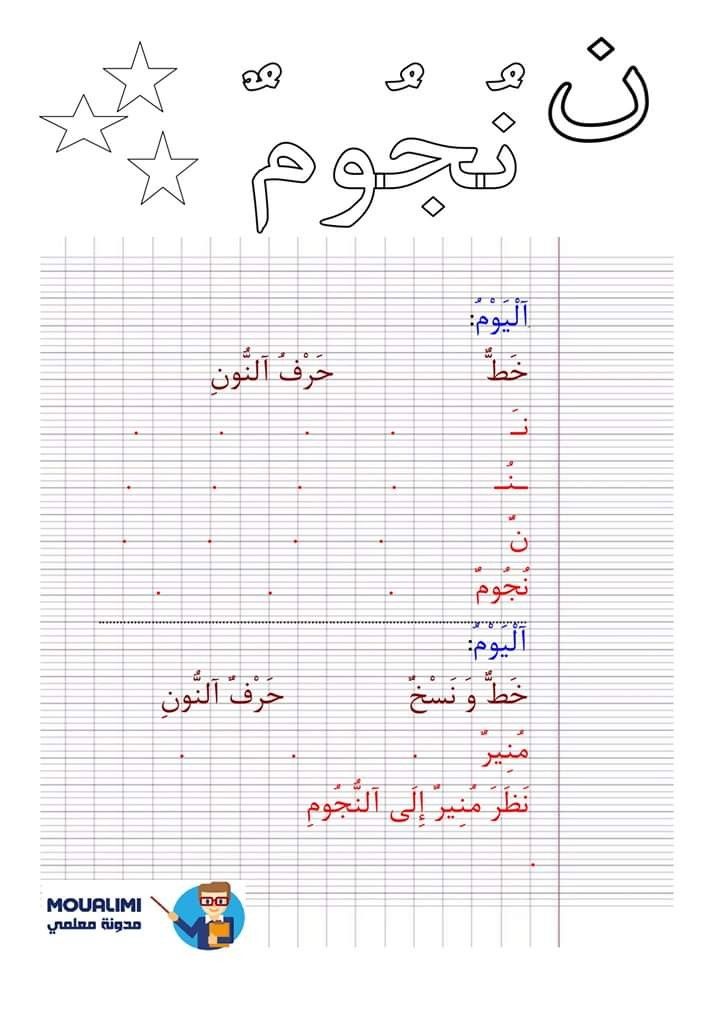 ن
نُجُومٌ
اَلْيَوْمُ:
خَطٌّ حَرْفُ اَلنُّونِ
نَـ . . . .
ـنُـ . . . .
نٌ . . . .
نُجُومٌ . . .
اَلْيَوْمُ:
خَطٌّ وَ نَسْخٌ حَرْفٌ اَلنُّونِ
مُنِيرٌ . . .
نَظَرَ مُنِيرٌ إِلَى اَلنُّجُومِ
.
MOUALIMI
مدونة معلمي